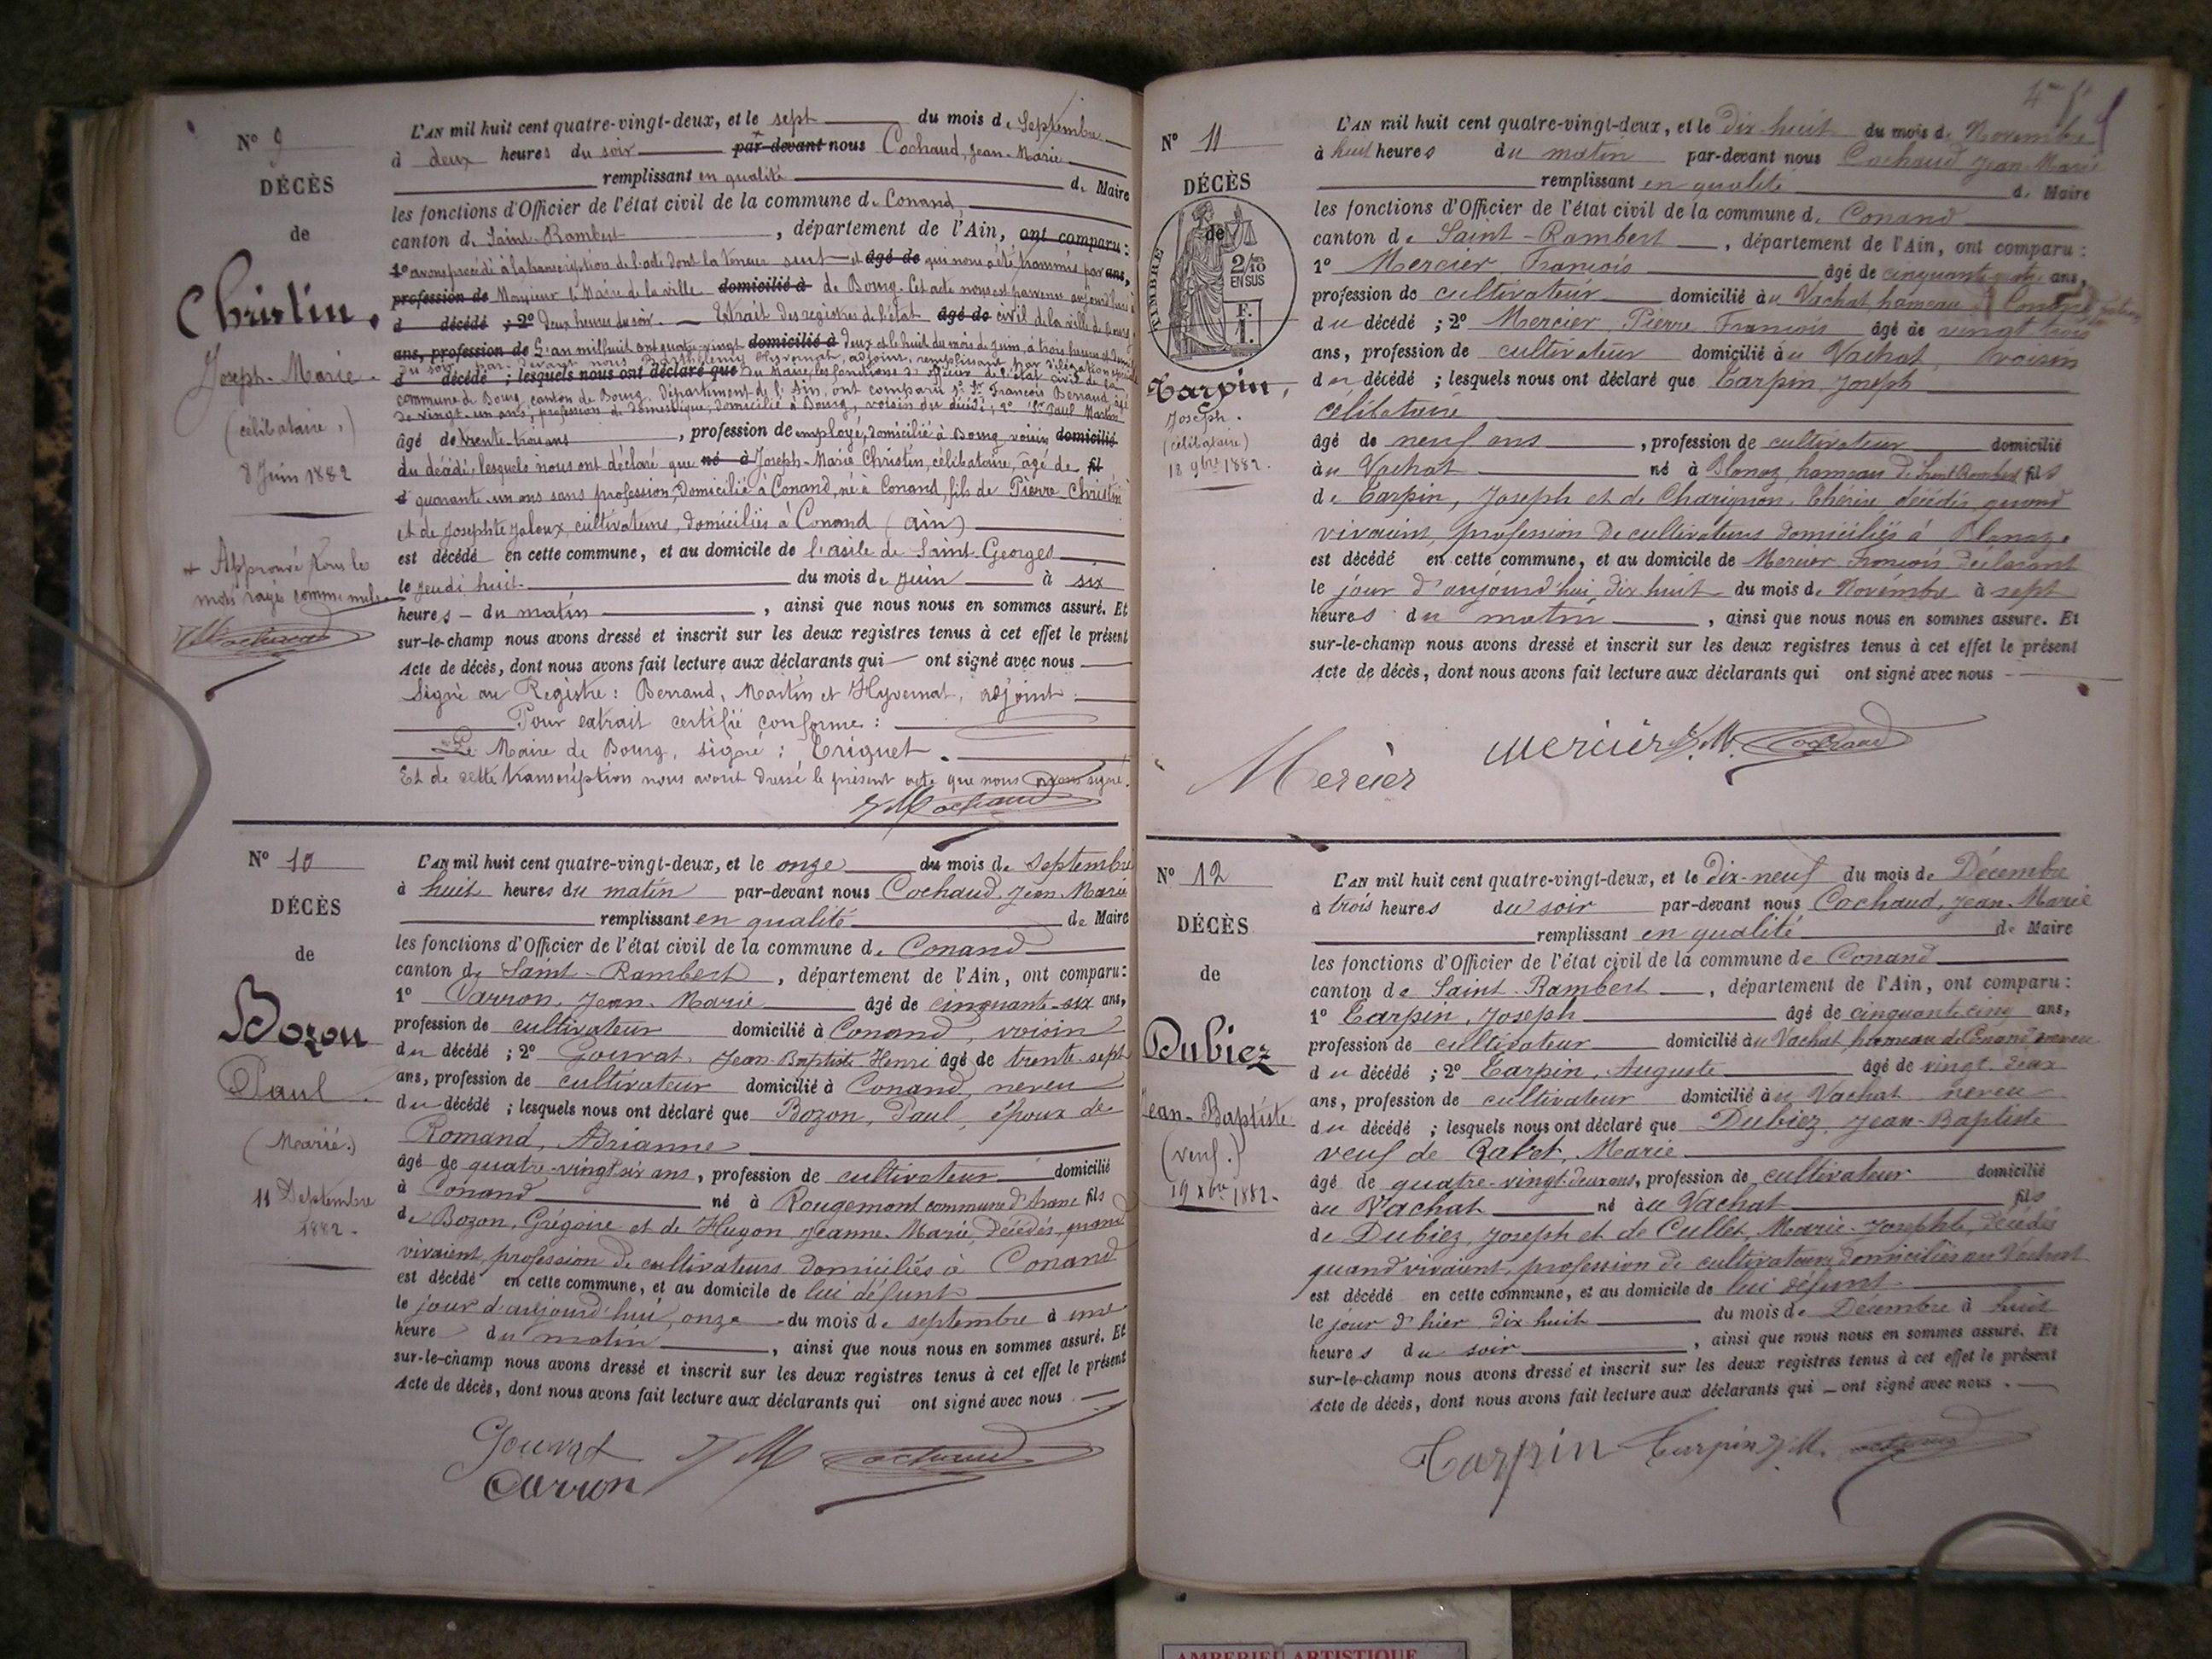 N° 9
DÉCÈS
de
Christin,
Joseph-Marie.
(célibataire.)
8 Juin 1882
+ Approuvé tous les
mots rayés comme nuls.
L'AN mil huit cent quatre-vingt-deux, et le sept du mois de Septembre
à deux heures du soir par-devant nous Cochaud, Jean-Marie
remplissant en qualité de Maire
les fonctions d'Officier de l'état civil de la commune de Conand
canton de Saint-Rambert, département de l'Ain, ont comparu :
1° avons procédé à la transcription de l'acte dont la teneur suit et âgé de qui nous a été transmis par ans,
profession de Monsieur le Maire de la ville domicilié à de Bourg. Cet acte nous est parvenu aujourd'hui à
d décédé ; 2° deux heures du soir. — Extrait des registres de l'état âgé de civil de la ville de Bourg
ans, profession de L'an mil huit cent quatre-vingt domicilié à deux et le huit du mois de juin, à trois heures et demie
du soir, par-devant nous Barthélemy Hyvernat, adjoint, remplissant par délégation spéciale
d décédé ; lesquels nous ont déclaré que du Maire, les fonctions d'officier de l'état civil de la
commune de Bourg, canton de Bourg, département de l'Ain, ont comparu 1° Sr François Berraud, âgé
de vingt-un ans, profession de domestique, domicilié à Bourg, voisin du décédé, 2° Sr Paul Martin
âgé de trente-trois ans, profession de employé, domicilié à Bourg, voisin domicilié
du décédé, lesquels nous ont déclaré que né à Joseph-Marie Christin, célibataire, âgé de fil
d quarante-un ans sans profession, domicilié à Conand, né à Conand, fils de Pierre Christin
et de Josephte Jaloux, cultivateurs, domiciliés à Conand (ain)
est décédé en cette commune, et au domicile de l'asile de Saint-Georges
le jeudi huit du mois de juin à six
heures du matin, ainsi que nous nous en sommes assuré. Et
sur-le-champ nous avons dressé et inscrit sur les deux registres tenus à cet effet le présent
Acte de décès, dont nous avons fait lecture aux déclarants qui ont signé avec nous
Signé au Registre : Berraud, Martin et Hyvernat, adjoint.
Pour extrait certifié conforme :
Le Maire de Bourg, signé :
Et de cette transcription nous avons dressé le présent acte que nous avons signé.
JM Cochaud
N° 10
DÉCÈS
de
Bozon
Paul
(Marié.)
11 Septembre
1882.
L'AN mil huit cent quatre-vingt-deux, et le onze du mois de Septembre
à huit heures du matin par-devant nous Cochaud, Jean-Marie
remplissant en qualité de Maire
les fonctions d'Officier de l'état civil de la commune de Conand
canton de Saint-Rambert, département de l'Ain, ont comparu :
1° Varron, Jean-Marie âgé de cinquante-six ans,
profession de cultivateur domicilié à Conand, voisin
du décédé ; 2° Gouvat, Jean-Baptiste Henri âgé de trente-sept
ans, profession de cultivateur domicilié à Conand, neveu
du décédé ; lesquels nous ont déclaré que Bozon, Paul, époux de
Romand, Adrianne
âgé de quatre-vingt six ans, profession de cultivateur domicilié
à Conand né à Rougemont commune d'Aranc fils
de Bozon, Grégoire et de Hugon, Jeanne-Marie, décédés, quand
vivaient, profession de cultivateurs domiciliés à Conand
est décédé en cette commune, et au domicile de lui défunt
le jour d'aujourd'hui, onze du mois de septembre à une
heure du matin, ainsi que nous nous en sommes assuré. Et
sur-le-champ nous avons dressé et inscrit sur les deux registres tenus à cet effet le présent
Acte de décès, dont nous avons fait lecture aux déclarants qui ont signé avec nous
Gouvat JM Cochaud
Carron
N° 11
DÉCÈS
de
TIMBRE
2/10
EN SUS
F.
1.
Tarpin,
Joseph.
(célibataire)
18 9bre 1882.
L'AN mil huit cent quatre-vingt-deux, et le dix-huit du mois de Novembre
à huit heures du matin par-devant nous Cochaud Jean-Marie
remplissant en qualité de Maire
les fonctions d'Officier de l'état civil de la commune de Conand
canton de Saint-Rambert, département de l'Ain, ont comparu :
1° Mercier, François âgé de cinquante ans,
profession de cultivateur domicilié au Vachat hameau
du décédé ; 2° Mercier, Pierre François âgé de vingt trois
ans, profession de cultivateur domicilié au Vachat, voisin
du décédé ; lesquels nous ont déclaré que Tarpin, Joseph
célibataire
âgé de neuf ans, profession de cultivateur domicilié
au Vachat né à Blanaz, hameau de Saint Rambert fils
de Tarpin, Joseph et de Charignon, Thérèse décédés, quand
vivaient, profession de cultivateurs domiciliés à Blanaz.
est décédé en cette commune, et au domicile de Mercier François déclarant
le jour d'aujourd'hui, dix huit du mois de Novembre à sept
heures du matin, ainsi que nous nous en sommes assuré. Et
sur-le-champ nous avons dressé et inscrit sur les deux registres tenus à cet effet le présent
Acte de décès, dont nous avons fait lecture aux déclarants qui ont signé avec nous
Mercier mercier J.M. Cochaud
N° 12
DÉCÈS
de
Dubiez
Jean-Baptiste
(veuf.)
19 xbre 1882.
L'AN mil huit cent quatre-vingt-deux, et le dix-neuf du mois de Décembre
à trois heures du soir par-devant nous Cochaud, Jean-Marie
remplissant en qualité de Maire
les fonctions d'Officier de l'état civil de la commune de Conand
canton de Saint-Rambert, département de l'Ain, ont comparu :
1° Tarpin, Joseph âgé de cinquante cinq ans,
profession de cultivateur domicilié au Vachat, hameau de Conand neveu
du décédé ; 2° Tarpin, Auguste âgé de vingt-deux
ans, profession de cultivateur domicilié au Vachat neveu
du décédé ; lesquels nous ont déclaré que Dubiez, Jean-Baptiste
veuf de Rabet, Marie
âgé de quatre-vingt-deux ans, profession de cultivateur domicilié
au Vachat né au Vachat fils
de Dubiez, Joseph et de Cullet, Marie-Josephte, décédés
quand vivaient, profession de cultivateurs domiciliés au Vachat
est décédé en cette commune, et au domicile de lui défunt
le jour d'hier dix huit du mois de Décembre à huit
heures du soir, ainsi que nous nous en sommes assuré. Et
sur-le-champ nous avons dressé et inscrit sur les deux registres tenus à cet effet le présent
Acte de décès, dont nous avons fait lecture aux déclarants qui ont signé avec nous.
Tarpin Tarpin J.M. Cochaud
AMBERIEU ARTISTIQUE